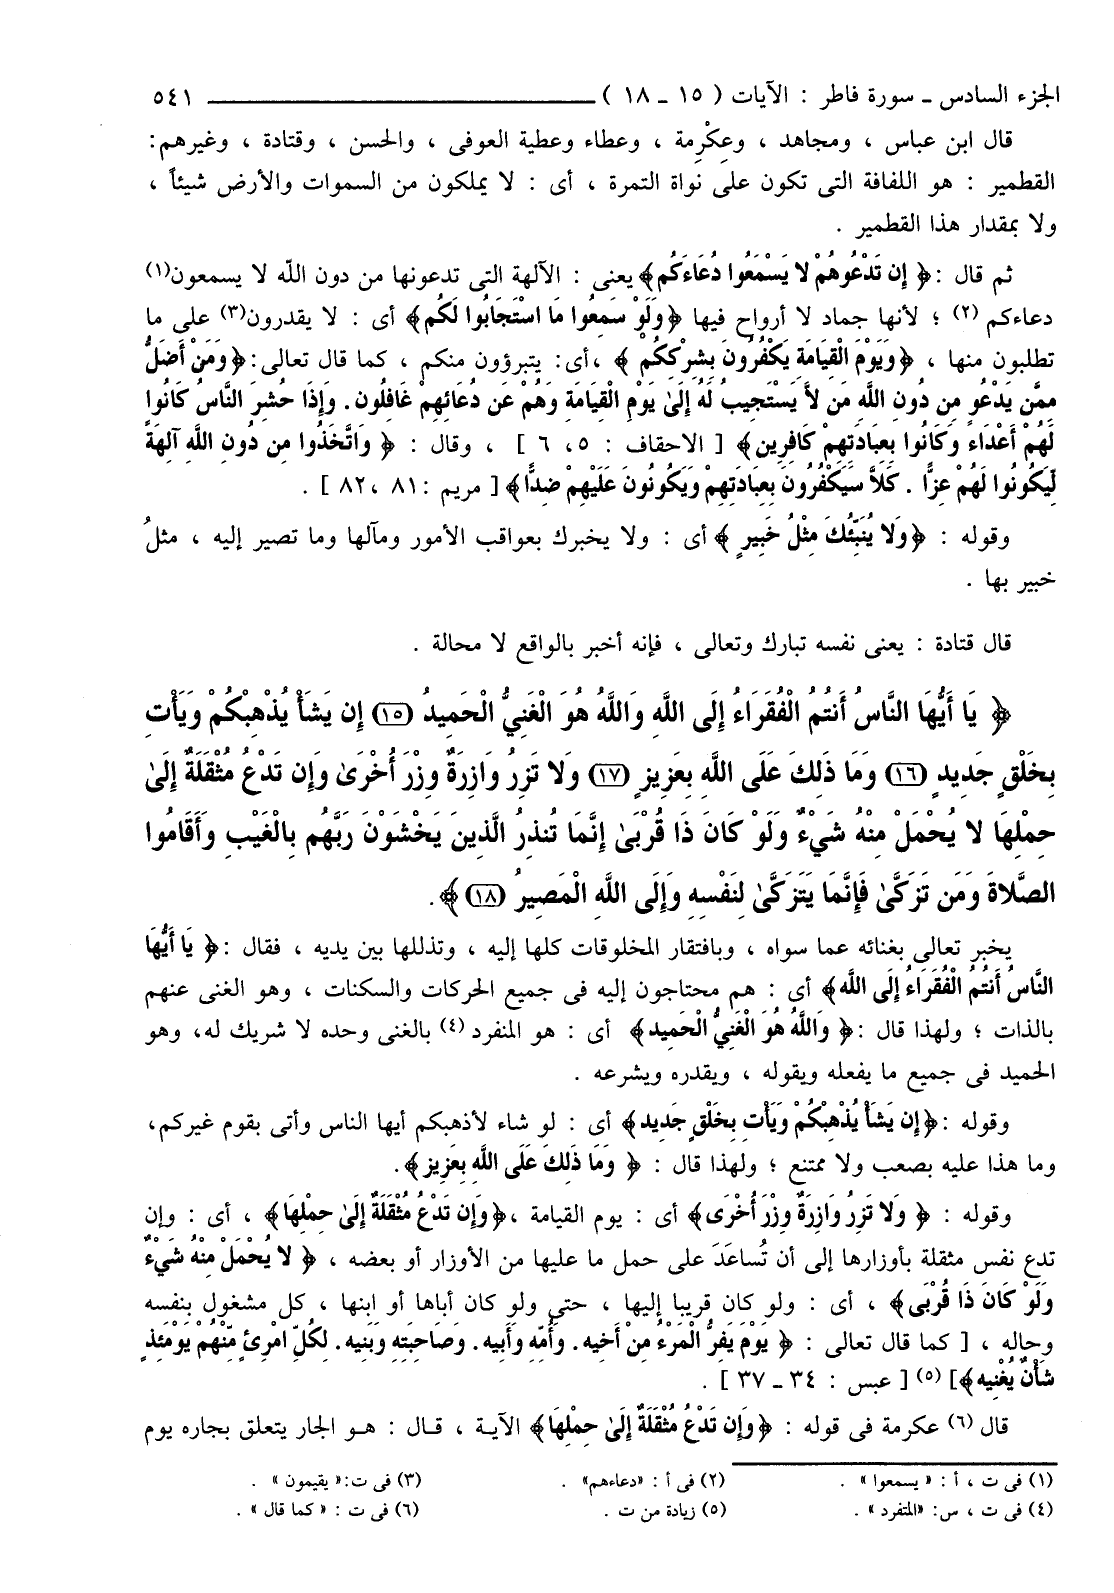 الجزء السادس ـ سورة فاطر : الآيات ( ١٥ ـ ١٨ ) ــــــــــــــــ ٥٤١
قال ابن عباس ، ومجاهد ، وعِكْرِمة ، وعطاء وعطية العوفى ، والحسن ، وقتادة ، وغيرهم:
القطمير : هو اللفافة التى تكون على نواة التمرة ، أى : لا يملكون من السموات والأرض شيئاً ،
ولا بمقدار هذا القطمير .
ثم قال :﴿ إِن تَدْعُوهُمْ لا يَسْمَعُوا دُعَاءَكُم﴾يعنى : الآلهة التى تدعونها من دون اللّه لا يسمعون(١)
دعاءكم (٢) ؛ لأنها جماد لا أرواح فيها ﴿وَلَوْ سَمِعُوا مَا اسْتَجَابُوا لَكُم﴾ أى : لا يقدرون(٣) على ما
تطلبون منها ، ﴿وَيَوْمَ الْقِيَامَةِ يَكْفُرُونَ بِشِرْكِكُم ﴾ ،أى: يتبرؤون منكم ، كما قال تعالى:﴿وَمَنْ أَضَلُّ
مِمَّن يَدْعُو مِن دُونِ اللَّهِ مَن لاَّ يَسْتَجِيبُ لَهُ إِلَىٰ يَوْمِ الْقِيَامَةِ وَهُمْ عَن دُعَائِهِمْ غَافِلُون. وَإِذَا حُشِرَ النَّاسُ كَانُوا
لَهُمْ أَعْدَاءً وَكَانُوا بِعِبَادَتِهِمْ كَافِرِين﴾ [ الاحقاف : ٥، ٦ ] ، وقال : ﴿ وَاتَّخَذُوا مِن دُونِ اللَّهِ آلِهَةً
لِّيَكُونُوا لَهُمْ عِزًّا . كَلاَّ سَيَكْفُرُونَ بِعِبَادَتِهِمْ وَيَكُونُونَ عَلَيْهِمْ ضِدًّا﴾[ مريم : ٨١ ،٨٢ ] .
وقوله : ﴿وَلا يُنَبِّئُكَ مِثْلُ خَبِيرٍ ﴾ أى : ولا يخبرك بعواقب الأمور ومآلها وما تصير إليه ، مثلُ
خبير بها .
قال قتادة : يعنى نفسه تبارك وتعالى ، فإنه أخبر بالواقع لا محالة .
﴿ يَا أَيُّهَا النَّاسُ أَنتُمُ الْفُقَرَاءُ إِلَى اللَّهِ وَاللَّهُ هُوَ الْغَنِيُّ الْحَمِيدُ (١٥) إِن يَشَأْ يُذْهِبْكُمْ وَيَأْتِ
بِخَلْقٍ جَدِيدٍ (١٦) وَمَا ذَلِكَ عَلَى اللَّهِ بِعَزِيزٍ (١٧) وَلا تَزِرُ وَازِرَةٌ وِزْرَ أُخْرَىٰ وَإِن تَدْعُ مُثْقَلَةٌ إِلَىٰ
حِمْلِهَا لا يُحْمَلْ مِنْهُ شَيْءٌ وَلَوْ كَانَ ذَا قُرْبَىٰ إِنَّمَا تُنذِرُ الَّذِينَ يَخْشَوْنَ رَبَّهُم بِالْغَيْبِ وَأَقَامُوا
الصَّلاةَ وَمَن تَزَكَّىٰ فَإِنَّمَا يَتَزَكَّىٰ لِنَفْسِهِ وَإِلَى اللَّهِ الْمَصِيرُ (١٨)﴾.
يخبر تعالى بغنائه عما سواه ، وبافتقار المخلوقات كلها إليه ، وتذللها بين يديه ، فقال :﴿ يَا أَيُّهَا
النَّاسُ أَنتُمُ الْفُقَرَاءُ إِلَى اللَّه﴾ أى : هم محتاجون إليه فى جميع الحركات والسكنات ، وهو الغنى عنهم
بالذات ؛ ولهذا قال :﴿ وَاللَّهُ هُوَ الْغَنِيُّ الْحَمِيد﴾ أى : هو المنفرد (٤) بالغنى وحده لا شريك له، وهو
الحميد فى جميع ما يفعله ويقوله ، ويقدره ويشرعه .
وقوله :﴿إِن يَشَأْ يُذْهِبْكُمْ وَيَأْتِ بِخَلْقٍ جَدِيد﴾ أى : لو شاء لأذهبكم أيها الناس وأتى بقوم غيركم،
وما هذا عليه بصعب ولا ممتنع ؛ ولهذا قال : ﴿ وَمَا ذَلِكَ عَلَى اللَّهِ بِعَزِيز﴾.
وقوله : ﴿ وَلا تَزِرُ وَازِرَةٌ وِزْرَ أُخْرَى﴾ أى : يوم القيامة ،﴿وَإِن تَدْعُ مُثْقَلَةٌ إِلَىٰ حِمْلِهَا﴾ ، أى : وإن
تدع نفس مثقلة بأوزارها إلى أن تُساعَدَ على حمل ما عليها من الأوزار أو بعضه ، ﴿ لا يُحْمَلْ مِنْهُ شَيْءٌ
وَلَوْ كَانَ ذَا قُرْبَى﴾ ، أى : ولو كان قريبا إليها ، حتى ولو كان أباها أو ابنها ، كل مشغول بنفسه
وحاله ، [ كما قال تعالى : ﴿ يَوْمَ يَفِرُّ الْمَرْءُ مِنْ أَخِيه. وَأُمِّهِ وَأَبِيه. وَصَاحِبَتِهِ وَبَنِيه. لِكُلِّ امْرِئٍ مِّنْهُمْ يَوْمَئِذٍ
شَأْنٌ يُغْنِيه﴾] (٥) [ عبس : ٣٤ ـ ٣٧ ] .
قال (٦) عكرمة فى قوله : ﴿وَإِن تَدْعُ مُثْقَلَةٌ إِلَىٰ حِمْلِهَا﴾ الآية ، قـال : هـو الجار يتعلق بجاره يوم
(١) فى ت ، أ : « يسمعوا » . (٢) فى أ : «دعاءهم» . (٣) فى ت:« يقيمون » .
(٤) فى ت ، س: «المتفرد» . (٥) زيادة من ت . (٦) فى ت : « كما قال » .